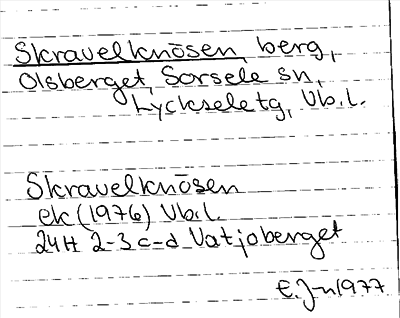 Skravelknösen, berg,
Olsberget, Sorsele sn,
Lycksele tg, Vb.l.
Skravelknösen
ek (1976) Vb.l.
24H 2-3 c-d Vatjoberget
E. J-n 1977